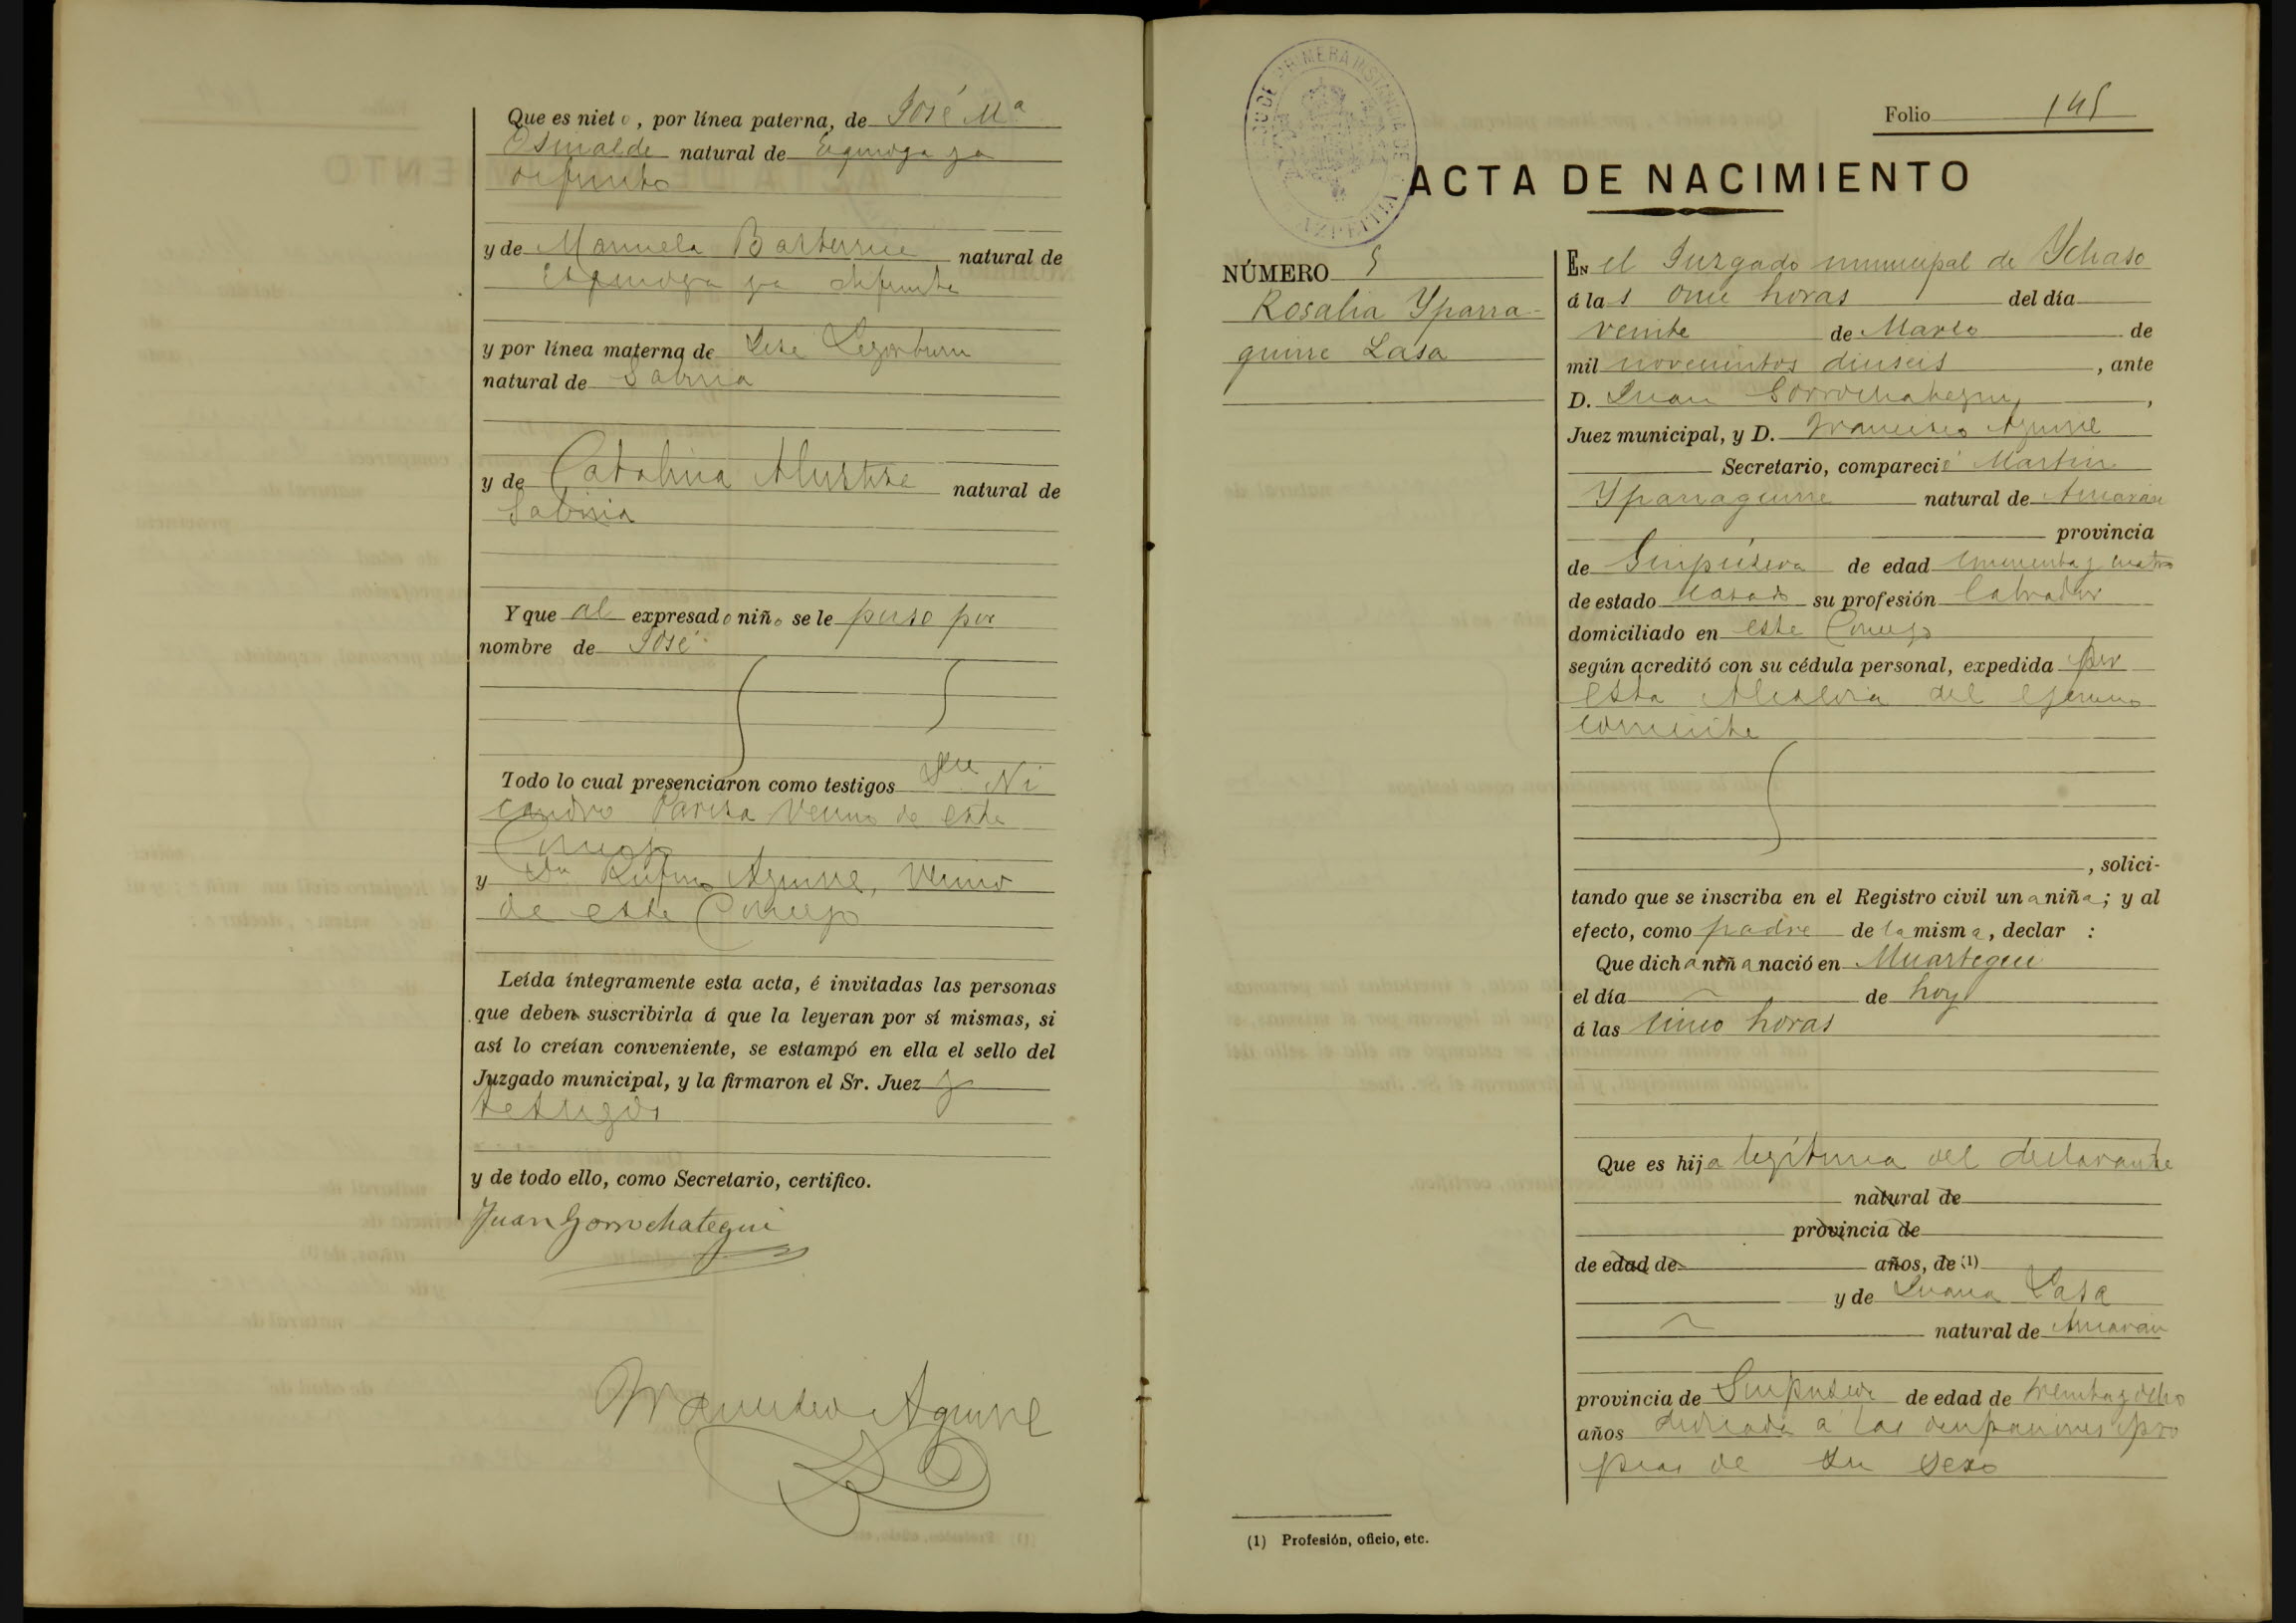 Que es nieto, por línea paterna, de José Mª
Osinalde natural de Ezquioga ya
difunto
y de Manuela Basterrica natural de
Ezquioga ya difunta
y por línea materna de José Legorburu
natural de Gabiria
y de Catalina Alustiza natural de
Gabiria
Y que al expresado niño se le puso por
nombre de José
Todo lo cual presenciaron como testigos Dn Ni
candro vecino de este
Concejo
y Dn Rufino Aguirre, vecino
de este Concejo
Leída íntegramente esta acta, é invitadas las personas
que deben suscribirla á que la leyeran por sí mismas, si
así lo creían conveniente, se estampó en ella el sello del
Juzgado municipal, y la firmaron el Sr. Juez y
testigos
y de todo ello, como Secretario, certifico.
Juan Gorrochategui
Francisco Aguirre
Folio 145
JUZGADO DE PRIMERA INSTANCIA DE AZPEITIA
ACTA DE NACIMIENTO
NÚMERO 5
Rosalia Yparra-
guirre Lasa
EN el Juzgado municipal de Ychaso
á las once horas del día
veinte de Marzo de
mil novecientos dieiseis, ante
D. Juan Gorrochategui,
Juez municipal, y D. Francisco Aguirre
Secretario, compareció Martin
Yparraguirre natural de
provincia
de Guipúzcoa de edad cuarenta y cuatro
de estado casado su profesión labrador
domiciliado en este Concejo
según acreditó con su cédula personal, expedida por
esta Alcaldia del ejercicio
corriente
, solici-
tando que se inscriba en el Registro civil una niña; y al
efecto, como padre de la misma, declar :
Que dicha niña nació en
el día de hoy
á las cinco horas
Que es hija legítima del declarante
natural de
provincia de
de edad de años, de (1)
y de Juana Lasa
natural de
provincia de Guipuzcoa de edad de treinta y ocho
años dedicada á las ocupaciones pro
pias de su sexo
(1) Profesión, oficio, etc.